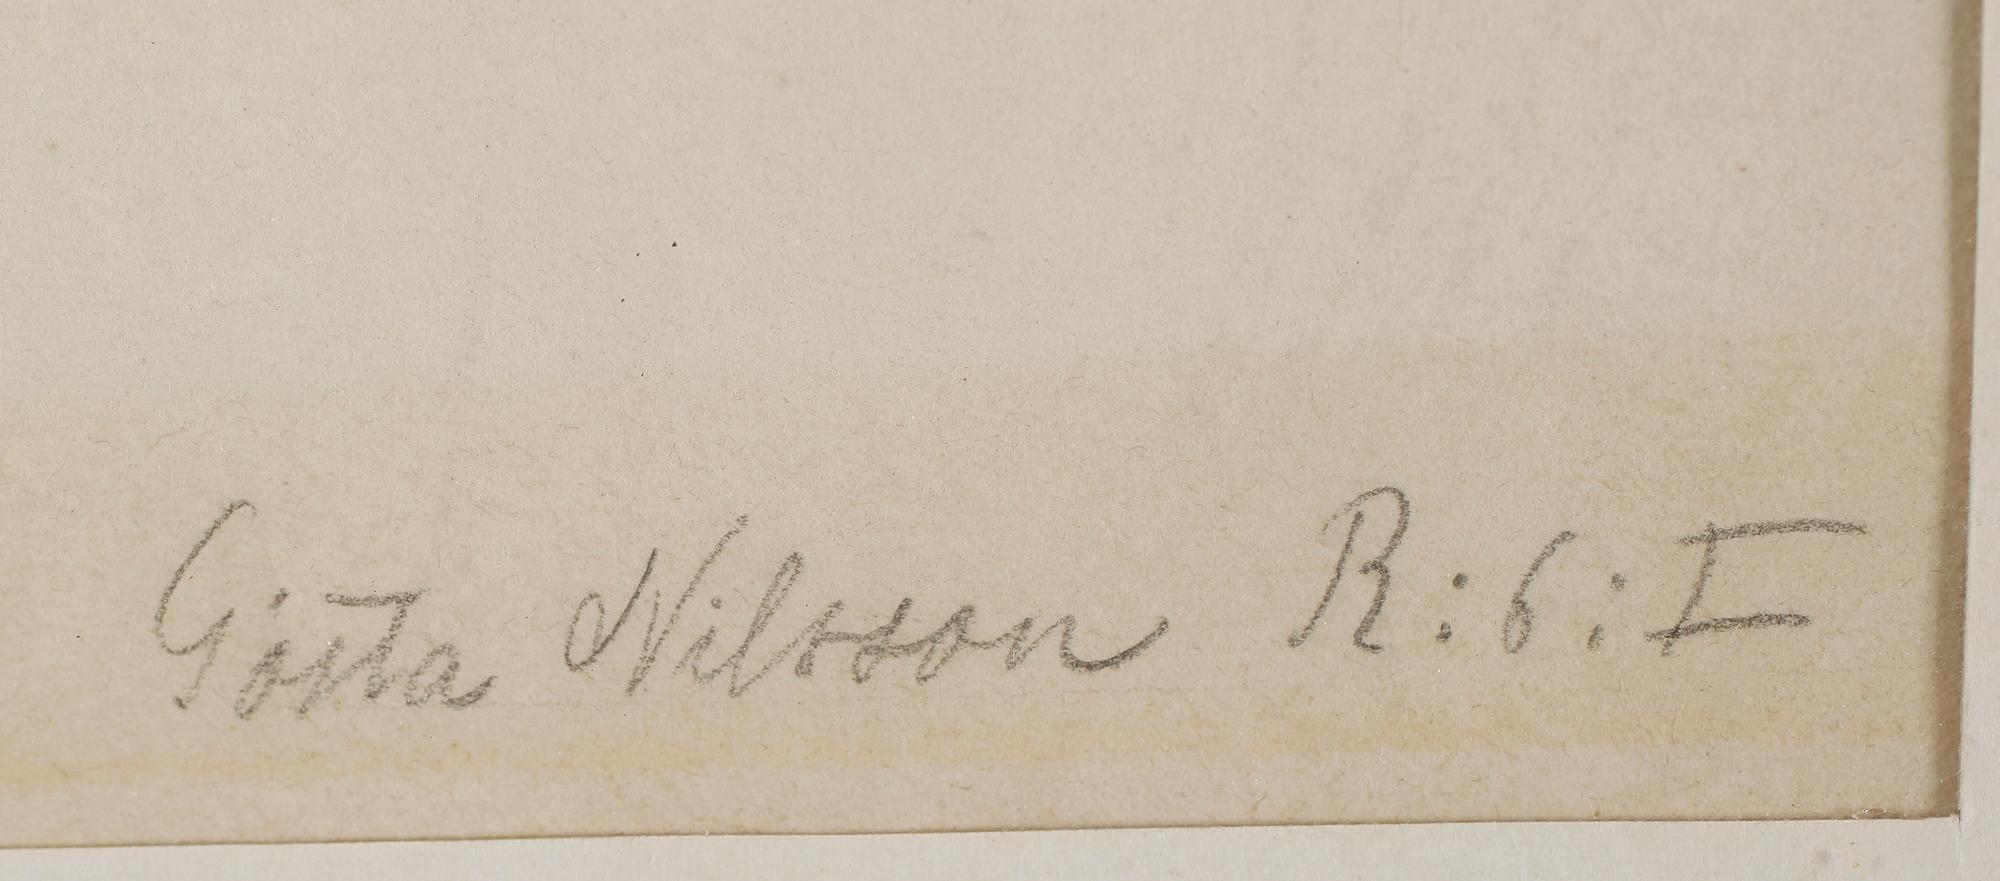 Gösta Nilsson R:6:F